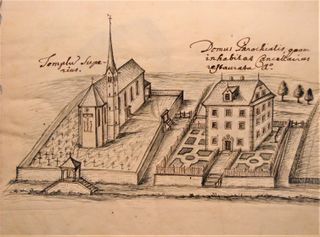 Templũ Supe-
rius.
Domus Parochialis, quam
inhabitat Cancellarius
restaurata A°.